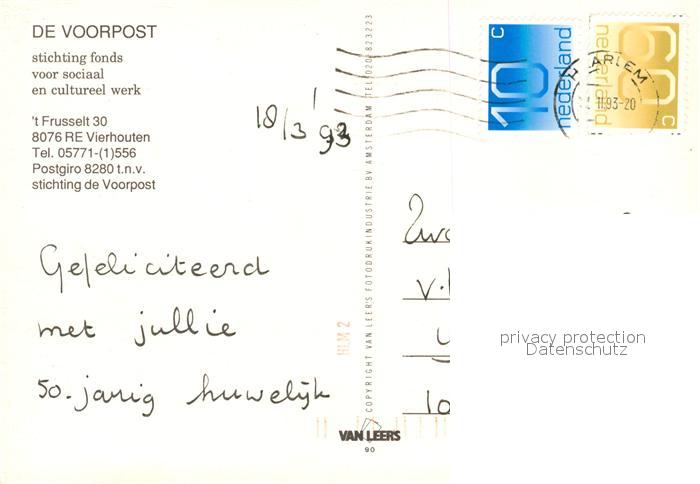 DE VOORPOST
stichting fonds
voor sociaal
en cultureel werk
't Frusselt 30
8076 RE Vierhouten
Tel. 05771-(1)556
Postgiro 8280 t.n.v.
stichting de Voorpost
18/3 '93
Gefeliciteerd
met jullie
50-jarig huwelijk
COPYRIGHT VAN LEER'S FOTODRUKINDUSTRIE BV AMSTERDAM TEL. 020-823223
HLM 2
VAN LEERS
90
10 c nederland
60 c nederland
HAARLEM
II.93-20
v.
10
privacy protection
Datenschutz